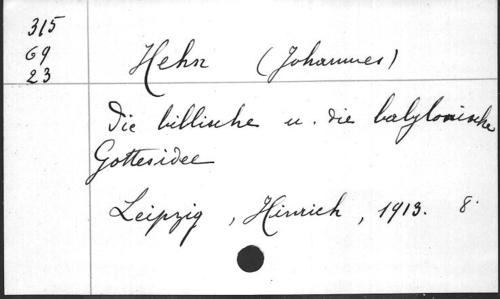 315
69
23
Hehn (Johannes)
Die biblische u. die babylonische
Gottesidee
Leipzig, Hinrich, 1913. 8°